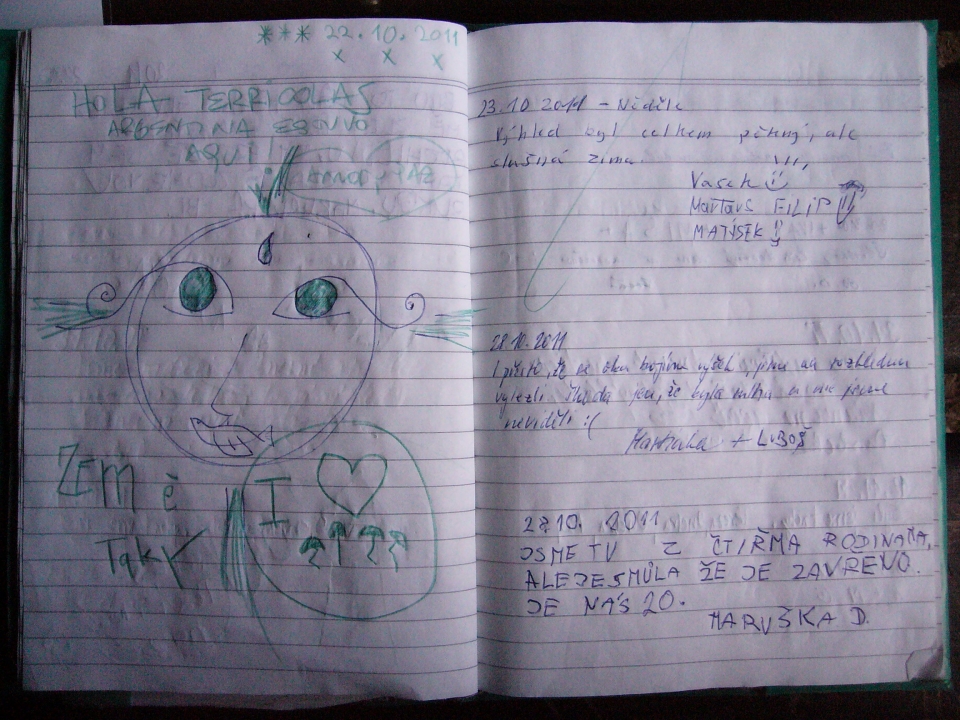 *** 22.10.2011
x x x
HOLA TERRICOLAS
ARGENTINA ESTUVO
AQUI!
AMOR y PAZ
ZEM è
TAKY
I
23.10.2011 - Neděle
Výhled byl celkem pěkný, ale
slušná zima.
Vašek
FILIP
MATÝSEK
28.10.2011
I přesto, že se oba bojíme výšek, jsme na rozhlednu
vylezli škoda jen, že byla mlha a nic jsme
neviděli :(
+ LUBOŠ
28.10. 2011
JSME TU Z ČTIŘMA RODINAMA,
ALE JE SMŮLA ŽE JE ZAVŘENO.
JE NÁS 20.
MARUŠKA D.